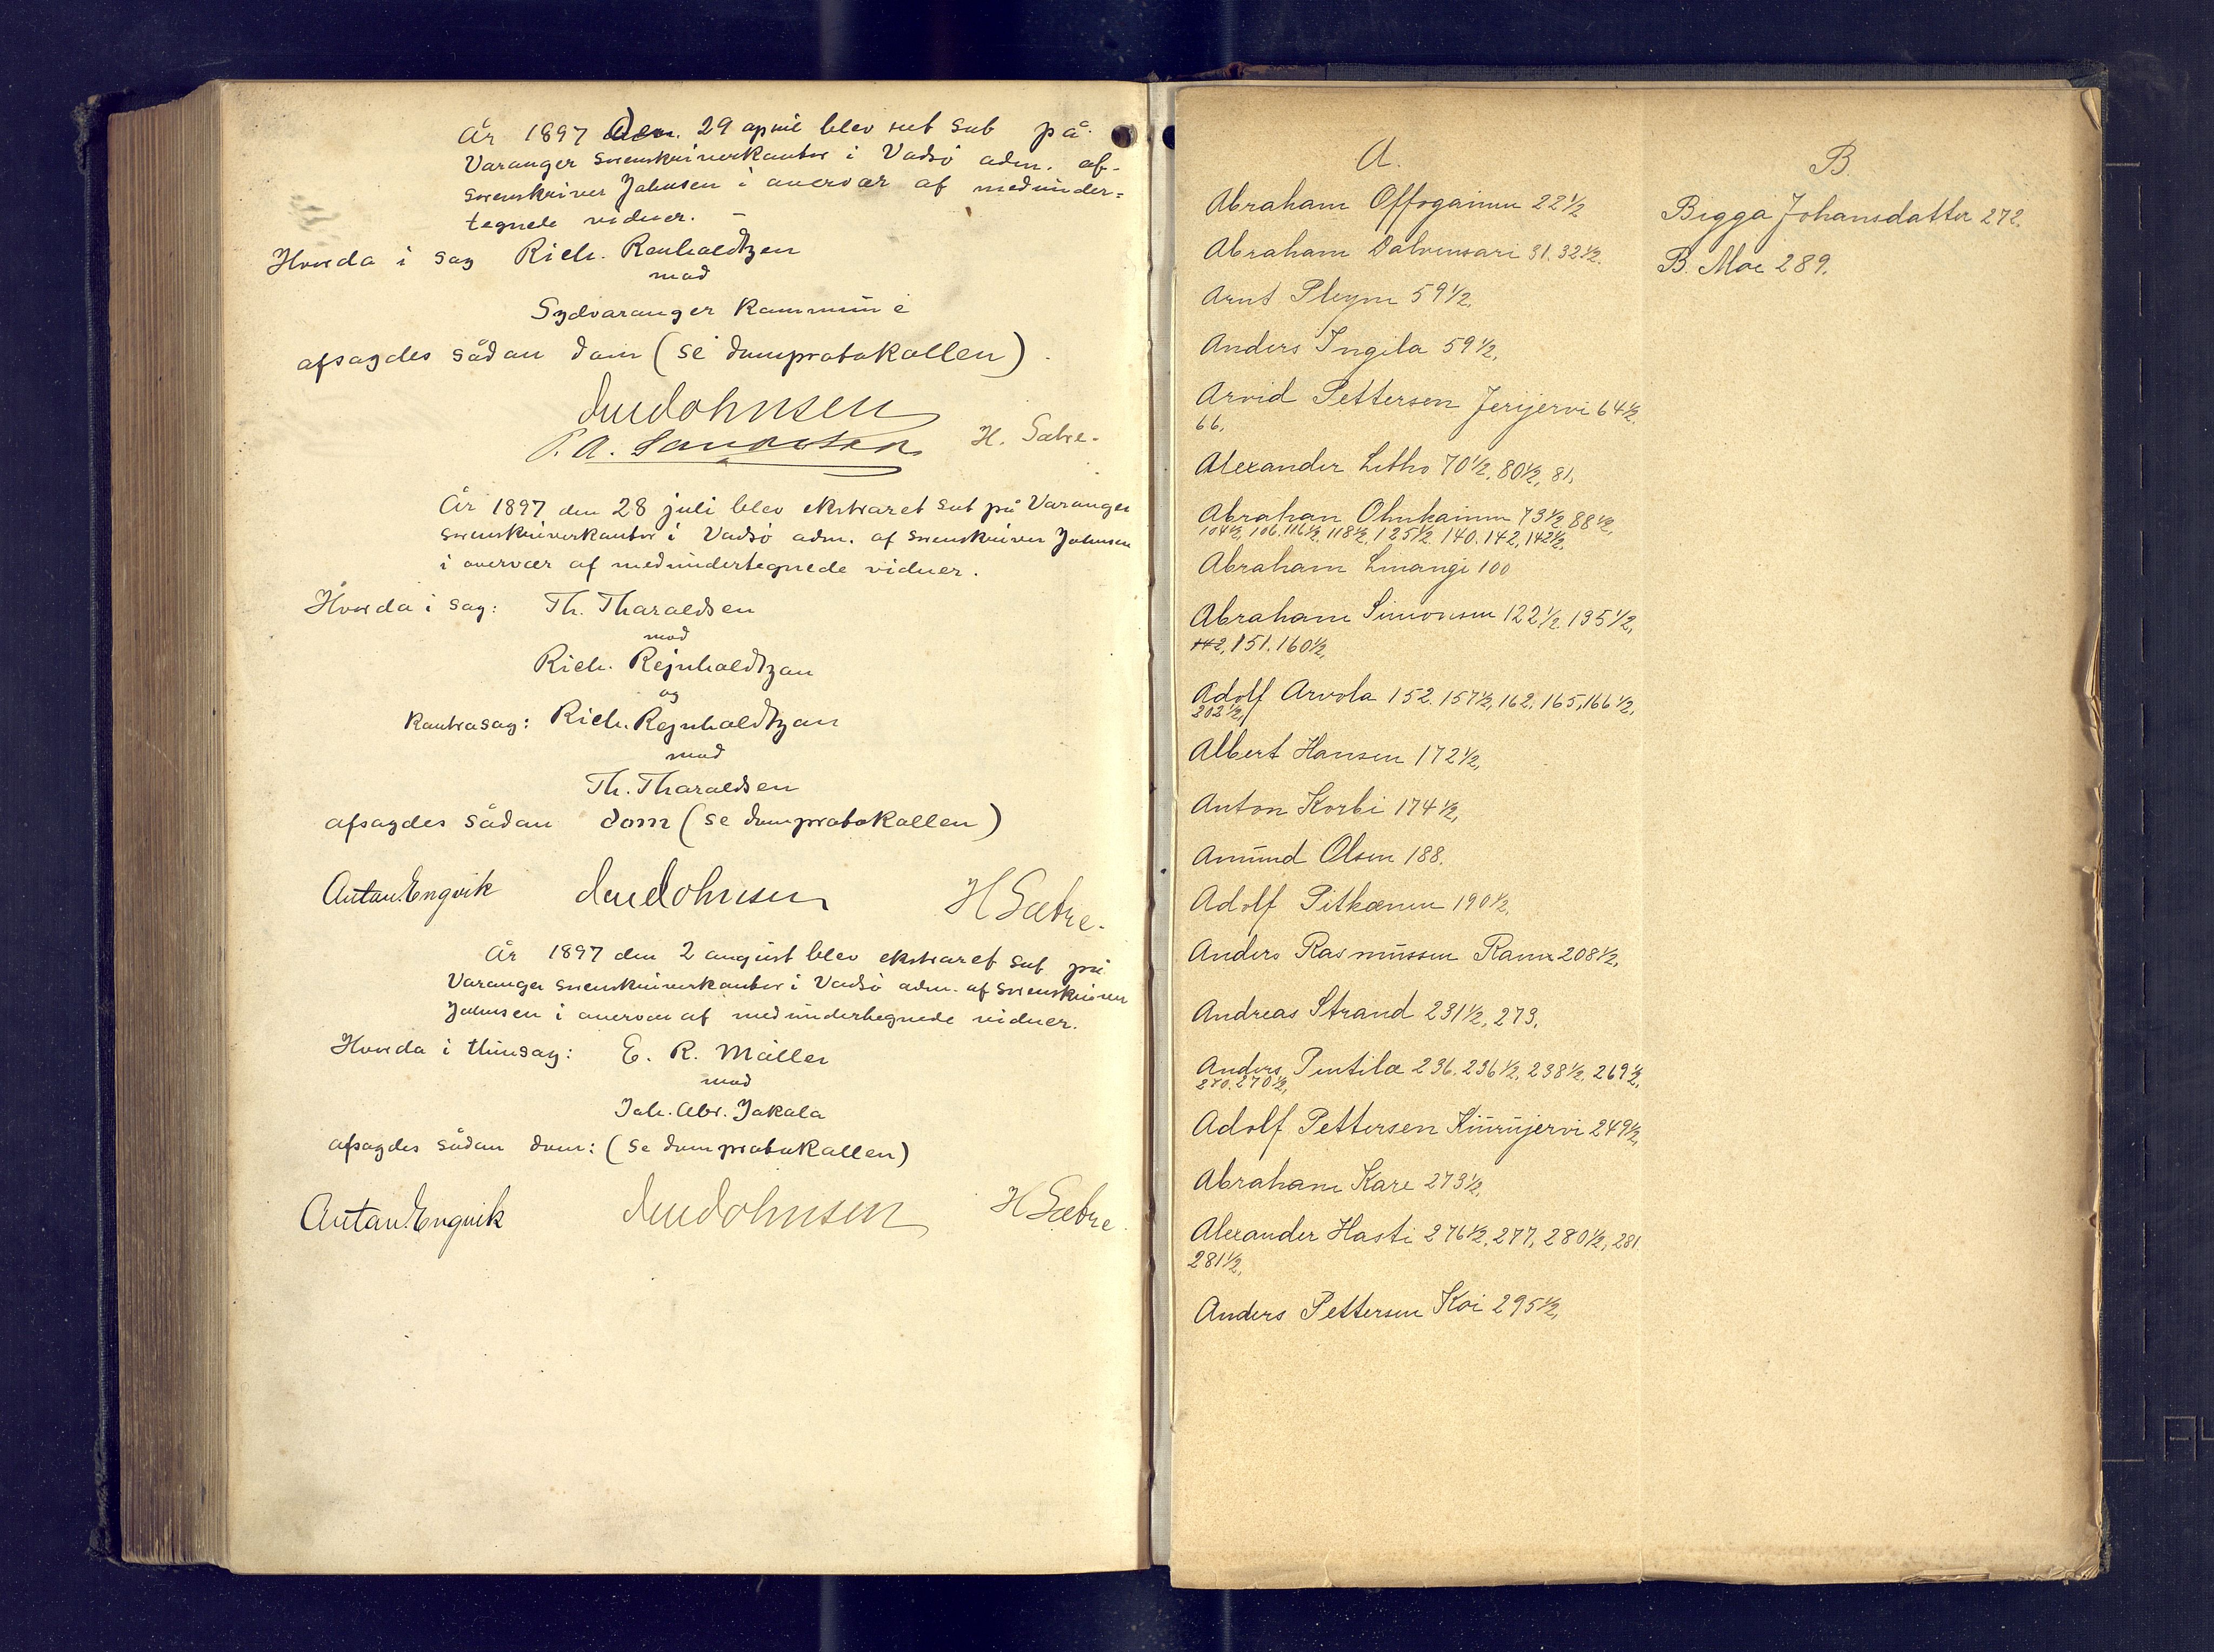 År 1897 den 29 april blev ret sat på
Varanger sorenskriverkontor i Vadsö adm. af
sorenskriver Johnsen i overvær af medunder=
tegnede vidner. –
Hvorda i sag Rich. Renholdtzen
mod
Sydvaranger kommune
afsagdes sådan dom (se domprotokollen).
Johnsen
H. Sætre.
År 1897 den 28 juli blev ekstraret sat på Varanger
sorenskriverkontor i Vadsö adm. af sorenskriver Johnsen
i overvær af medundertegnede vidner.
Hvorda i sag: Th. Tharaldsen
mod
Rich. Rejnholdtzen
og
Kontrasag: Rich. Rejnholdtzen
mod
Th. Tharaldsen
afsagdes sådan dom (se domprotokollen)
Anton Engvik Johnsen H Sætre.
År 1897 den 2 august blev ekstraret sat på
Varanger sorenskriverkontor i Vadsö adm. af sorenskriver
Johnsen i overvær af medundertegnede vidner.
Hvorda i thinsag: E. R. Möller
mod
Joh. Abr. Jakola
afsagdes sådan dom: (se domprotokollen)
Anton Engvik Johnsen H Sætre.
A.
Abraham Offogainen 22½
Abraham Dalvensari 31. 32½.
Arnt Pleym 59½,
Anders Ingila 59½,
Arvid Pettersen Jerijervi 64½.
66,
Alexander Letho 70½, 80½, 81,
Abrahan Ohukainen 73½, 88½,
104½, 106, 116½, 118½, 125½. 140. 142, 142½,
Abraham Linangi 100
Abraham Simonsen 122½. 135½,
142, 151. 160½,
Adolf Arvola 152. 157½, 162, 165, 166½,
202½,
Albert Hansen 172½,
Anton Korbi 174½,
Amund Olsen 188.
Adolf Pitkænen 190½.
Anders Rasmussen Rana 208½,
Andreas Strand 231½, 273,
Anders Pentila 236. 236½, 238½, 269½,
270. 270½,
Adolf Pettersen Kinrujervi 249½,
Abraham Kare 273½,
Alexander Hasti 276½, 277, 280½, 281
281½,
Anders Pettersen Koi 295½,
B.
Bigga Johansdatter 272.
B. Moe 289.